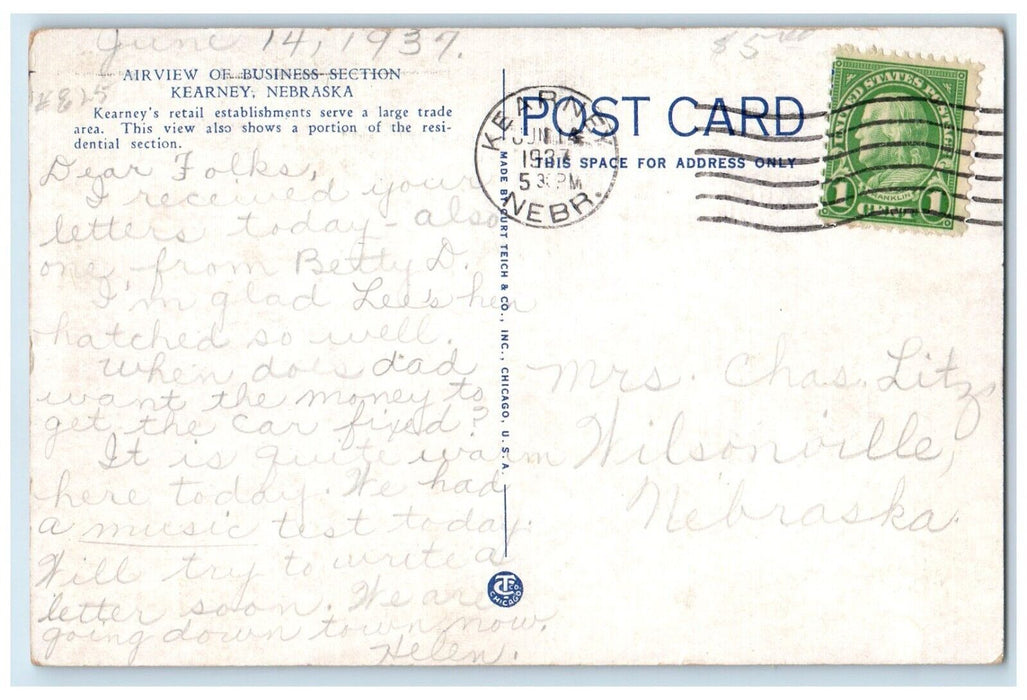 June 14, 1937.
$5
AIRVIEW OF BUSINESS SECTION
KEARNEY, NEBRASKA
Kearney's retail establishments serve a large trade
area. This view also shows a portion of the resi-
dential section.
Dear Folks,
I received your
letters today - also
one from Betty D.
I'm glad Lee's hen
hatched so well.
When does dad
want the money to
get the car fixed?
It is quite warm
here today. We had
a music test today.
Will try to write a
letter soon. We are
going down town now.
Helen.
MADE BY CURT TEICH & CO., INC., CHICAGO, U.S.A.
CT CO.
CHICAGO
POST CARD
THIS SPACE FOR ADDRESS ONLY
KEARNEY
JUN 14
1937
5 PM
NEBR.
UNITED STATES POSTAGE
FRANKLIN
1 CENT 1
Mrs. Chas. Litz
Wilsonville,
Nebraska.